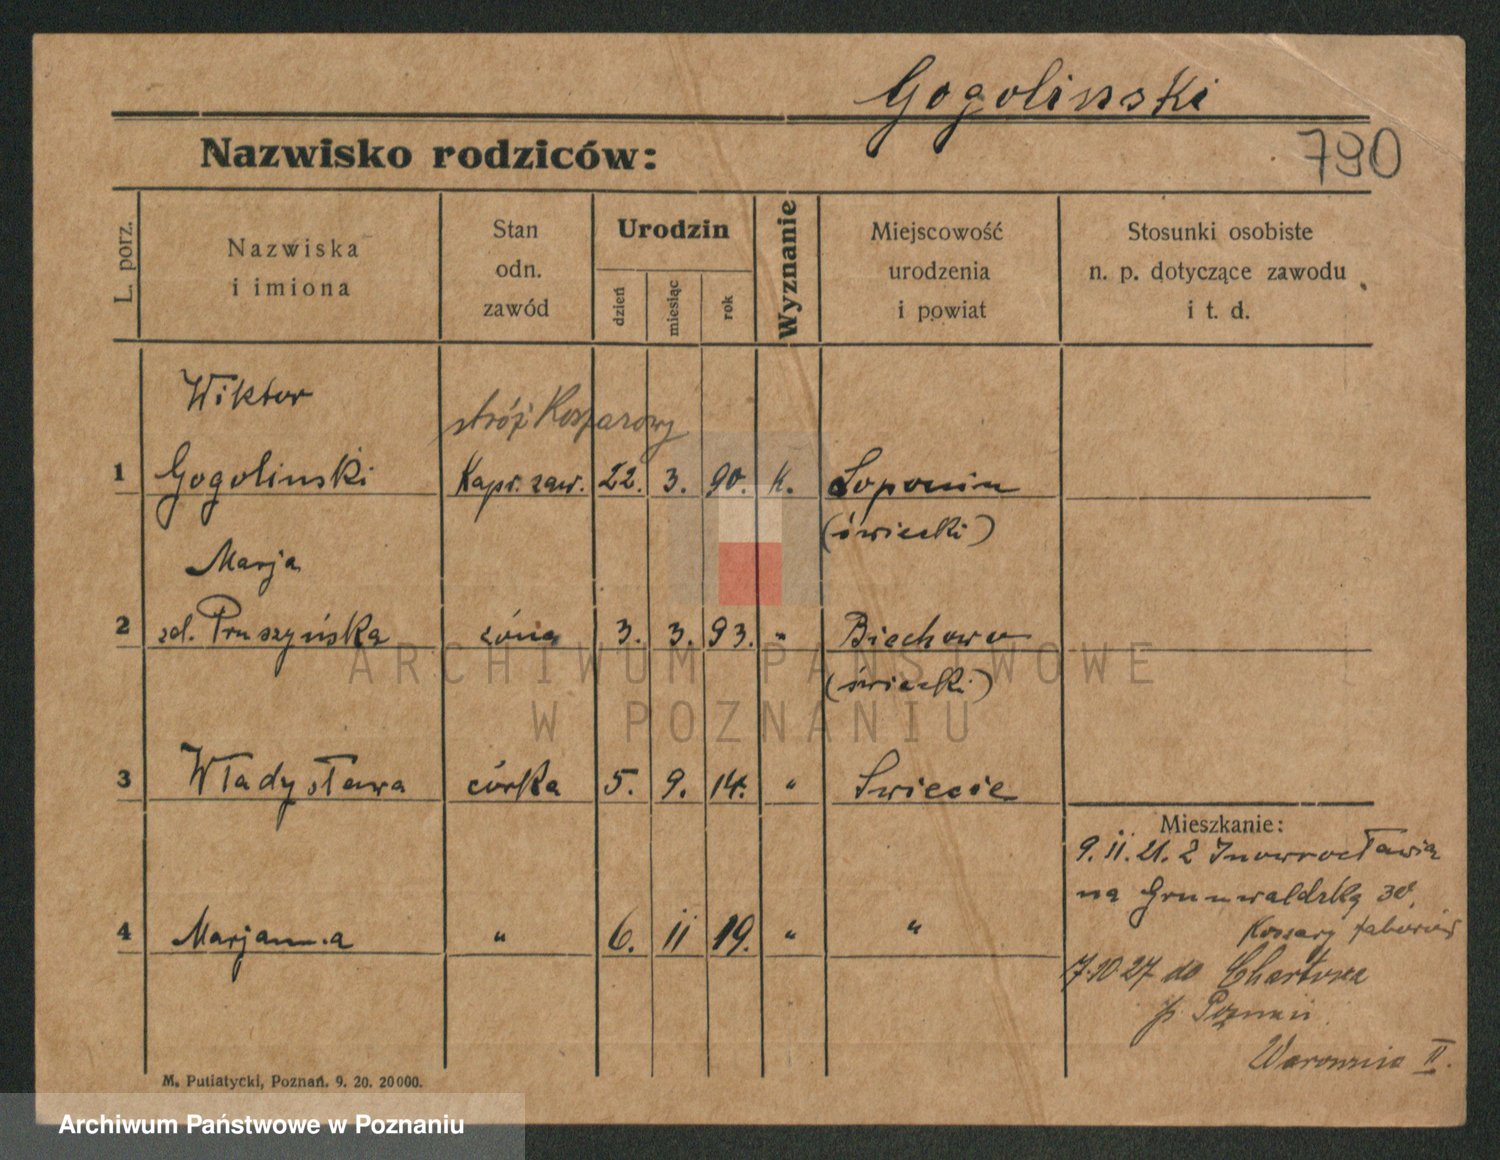 Gogolinski
790
Nazwisko rodziców:
L. porz.
Nazwiska
i imiona
Stan
odn.
zawód
Urodzin
dzień
miesiąc
rok
Wyznanie
Miejscowość
urodzenia
i powiat
Stosunki osobiste
n. p. dotyczące zawodu
i t. d.
Wiktor
stróż Koszarowy
1 Gogolinski Kapr. zaw. 22. 3. 90. K. Łoponin
(świecki)
Marja
2 zd. Pruszyńska żona 3. 3. 93. " Biechowo
(świecki)
3 Władysława córka 5. 9. 14. " Swiecie
Mieszkanie:
9. 11. 21. z Inowrocławia
na Grunwaldzką 30,
Koszary taborów
4 Marjanna " 6. 11 19. " "
7.10 27 do Chartowa
p. Poznań
Warownia II.
M. Putiatycki, Poznań. 9. 20. 20000.
ARCHIWUM PAŃSTWOWE
W POZNANIU
Archiwum Państwowe w Poznaniu